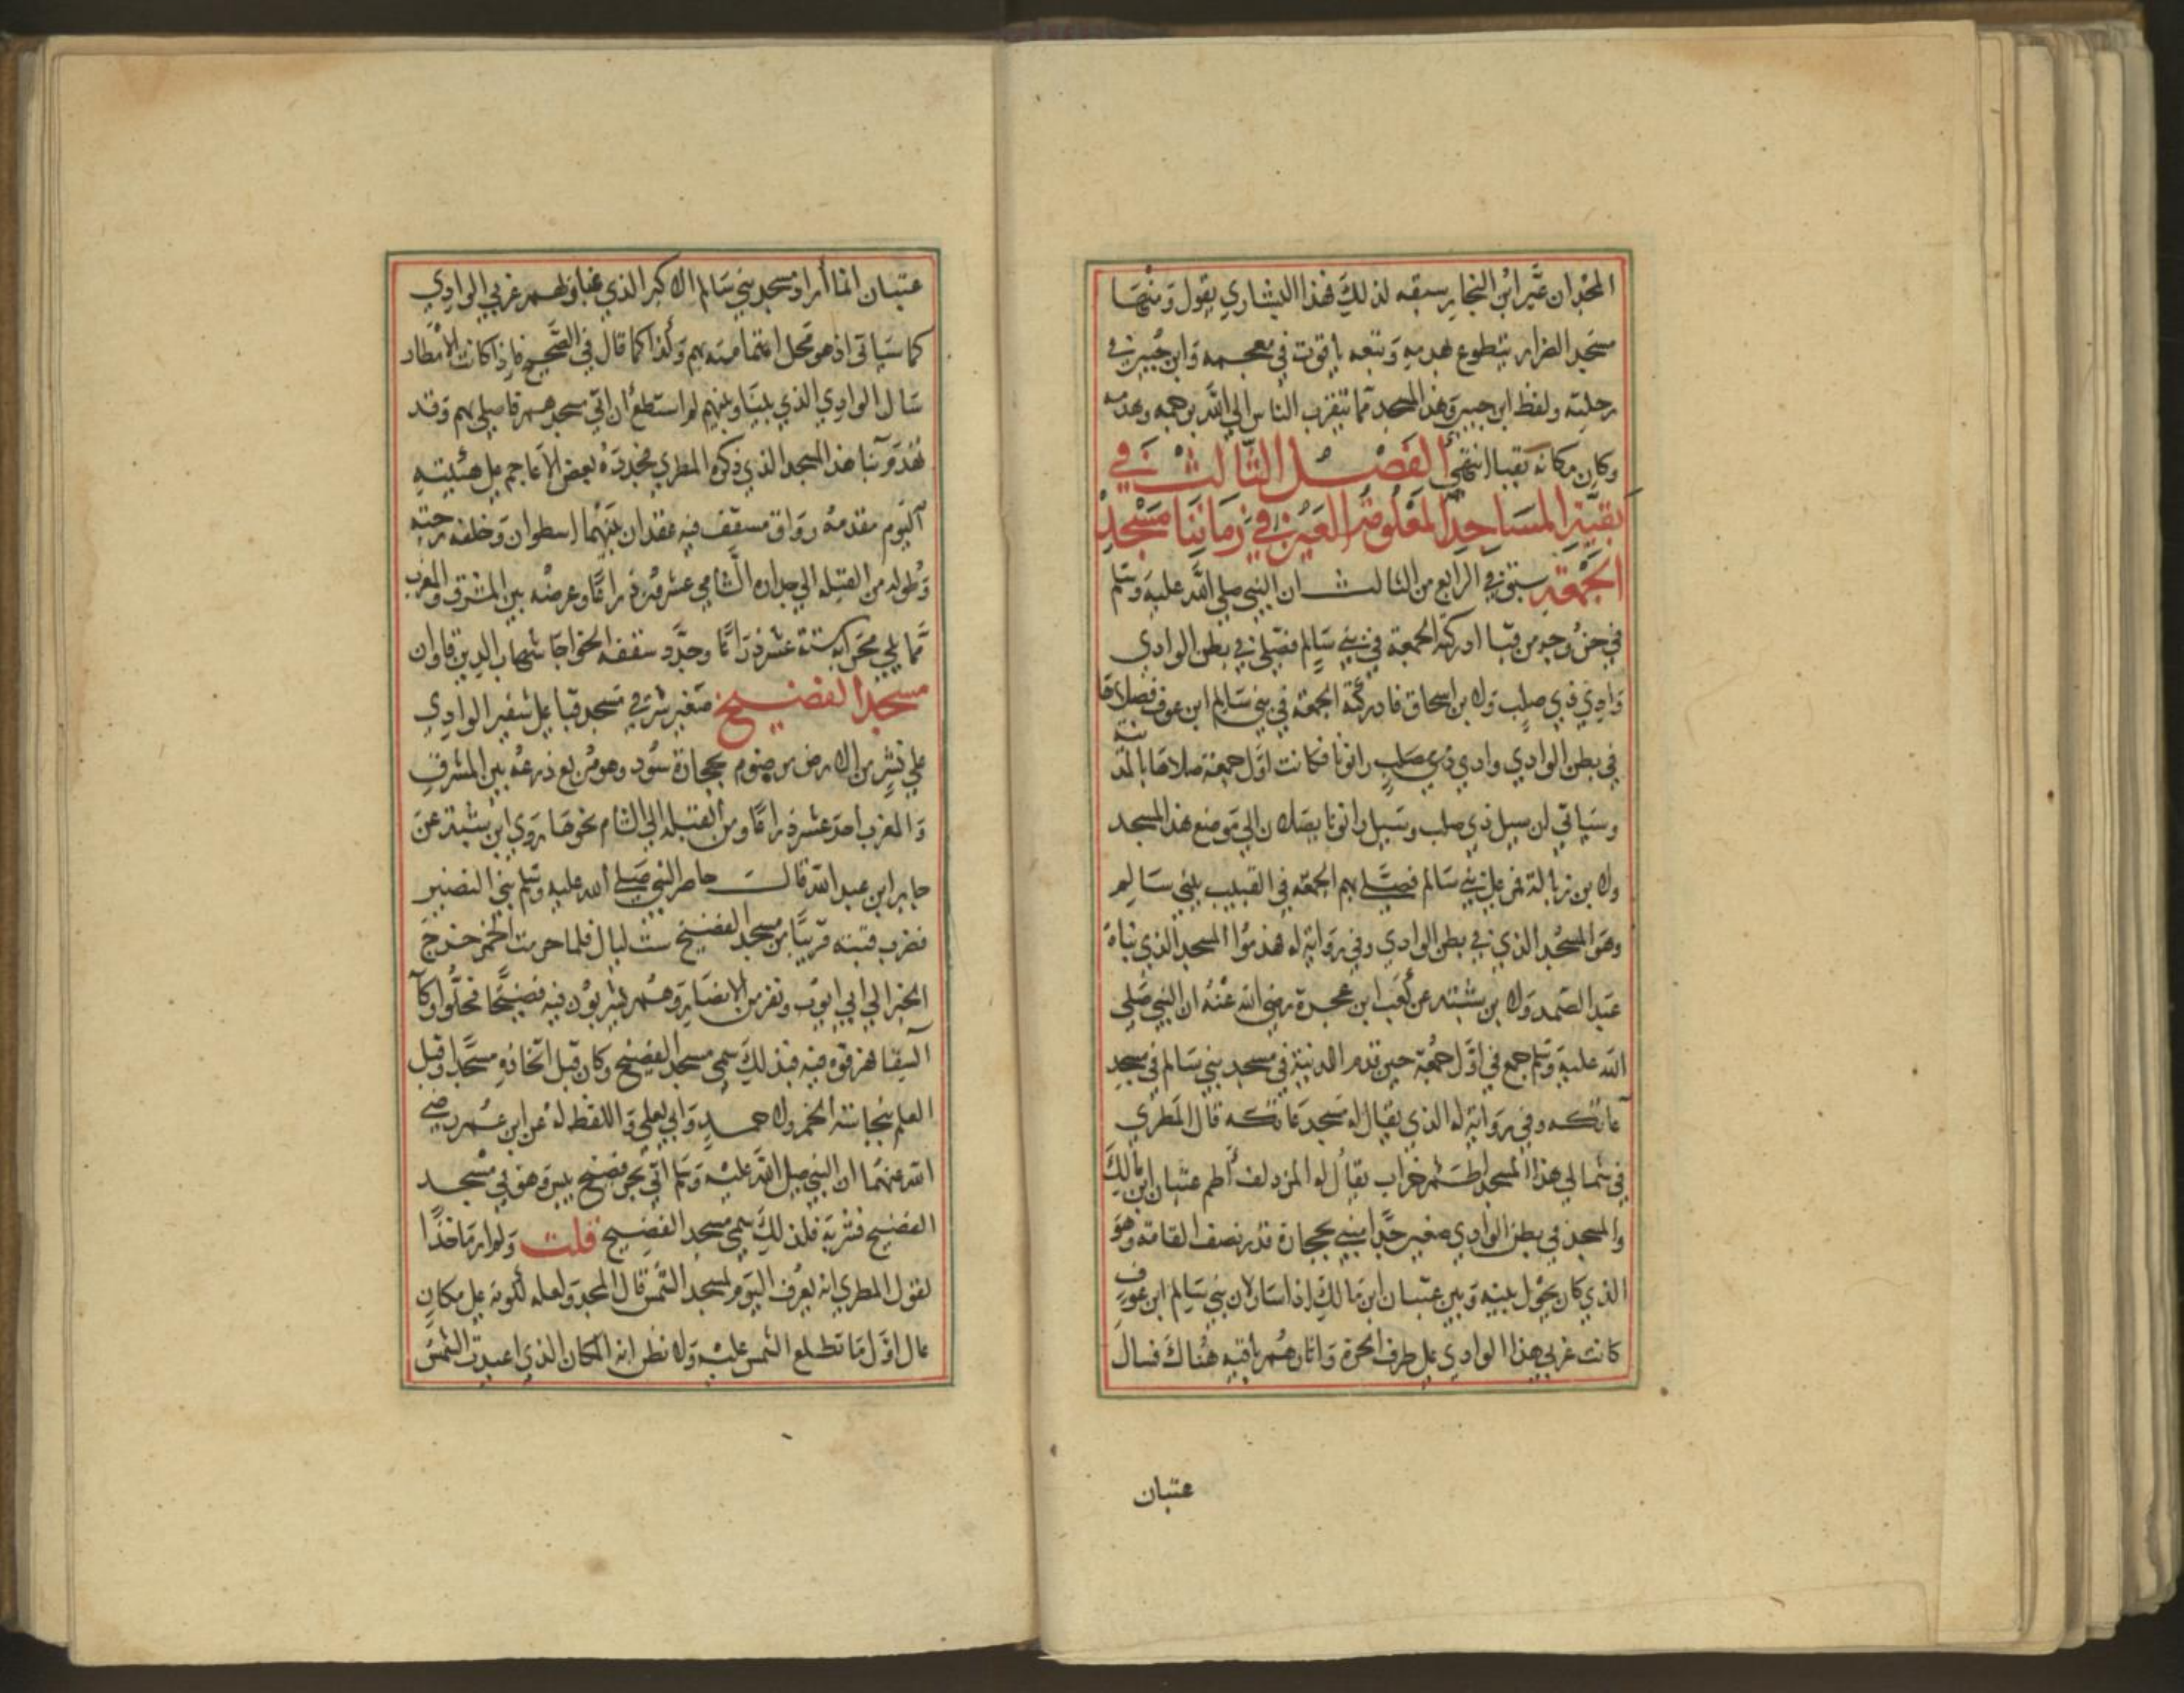 المجدان غير ابن النجار سبقه لذلك فهذا البشاري يقول ومنها
مسجد الضرار يتطوع بهدمه وتبعه ياقوت في معجمه وابن جبير في
رحلته ولفظ ابن جبير وهذا المسجد مما يتقرب الناس الى الله برجمه وهدمه
وكان مكانه بقبا انتهى الفصل الثالث في
بقية المساجد المعلومة العين في زماننا مسجد
الجمعة سبق في الرابع من الثالث ان النبي صلى الله عليه وسلم
في خروجه من قبا ادركته الجمعة في بني سالم فصلى في بطن الوادي
وادي ذي صلب ولابن اسحاق فادركته الجمعة في بني سالم ابن عوف فصلاها
في بطن الوادي وادي ذي صلب رانونا فكانت اول جمعة صلاها بالمدينة
وسياتي ان سيل ذي صلب وسيل رانونا يصلان الى موضع هذا المسجد
ولابن زبالة فمر على بني سالم فصلى بهم الجمعة في القبيب ببني سالم
وهو المسجد الذي في بطن الوادي وفي رواية له هدموا المسجد الذي بناه
عبد الصمد ولابن شبة عن كعب ابن عجرة رضي الله عنه ان النبي صلى
الله عليه وسلم جمع في اول جمعة حين قدم المدينة في مسجد بني سالم في مسجد
عاتكه وفي رواية له الذي يقال له مسجد عاتكه قال المطري
في شمالي هذا المسجد اطم خراب يقال له المزدلف أطم عتبان ابن مالك
والمسجد في بطن الوادي صغير جدا مبني بحجارة قدر نصف القامة وهو
الذي كان يحول بينه وبين عتبان ابن مالك اذا سال لان بني سالم ابن عوف
كانت غربي هذا الوادي على طرف الحرة واثارهم باقيه هناك فسال
عتبان
عتبان انما أراد مسجد بني سالم الاكبر الذي بمنازلهم غربي الوادي
كما سياتي اذ هو محل امامته بهم ولذا كما قال في الصحيح فاذا كانت الامطار
سال الوادي الذي بيننا وبينهم لم استطع ان اتي مسجدهم فاصلي بهم وقد
تهدم بنا هذا المسجد الذي ذكره المطري فجدده بعض الاعاجم على هئيته
اليوم مقدمه رواق مسقف فيه عقدان بينهما اسطوان وخلفه رحبته
وطوله من القبله الى جداره الشامي عشرون ذراعا وعرضه بين المشرق والمغرب
مما يلي محرابه ستة عشر ذراعا وجدد سقفه الخواجا شهاب الدين قاوان
مسجد الفضيخ صغير شرقي مسجد قبا على شفير الوادي
على نشز من الارض مرضوم بحجارة سود وهو مربع ذرعه بين المشرق
والمغرب احد عشر ذراعا ومن القبله الى الشام نحوها روى ابن شبة عن
جابر ابن عبد الله قالت حاصر النبي صلى الله عليه وسلم بني النضير
فضرب قبته قريبا من مسجد الفضيخ ست ليال فلما حرمت الخمر خرج
الخبر الى ابي ايوب ونفر من الانصار وهم يشربون فيه فضيخا فحلوا وكآ
السقا فهرقوه فيه فبذلك سمي مسجد الفضيخ وكان قبل اتخاذه مسجدا وقبل
العلم بنجاسة الخمر ولاحمد وابي يعلى واللفظ له عن ابن عمر رضي
الله عنهما ان النبي صلى الله عليه وسلم اتي بجر فضيخ بسر وهو في مسجد
الفضيخ فشربه فلذلك سمي مسجد الفضيخ قلت ولم ار ماخذا
لقول المطري انه يعرف اليوم بمسجد الشمس قال المجد ولعله لكونه على مكان
عال اول ما تطلع الشمس عليه ولا نظن انه المكان الذي اعيدت الشمس